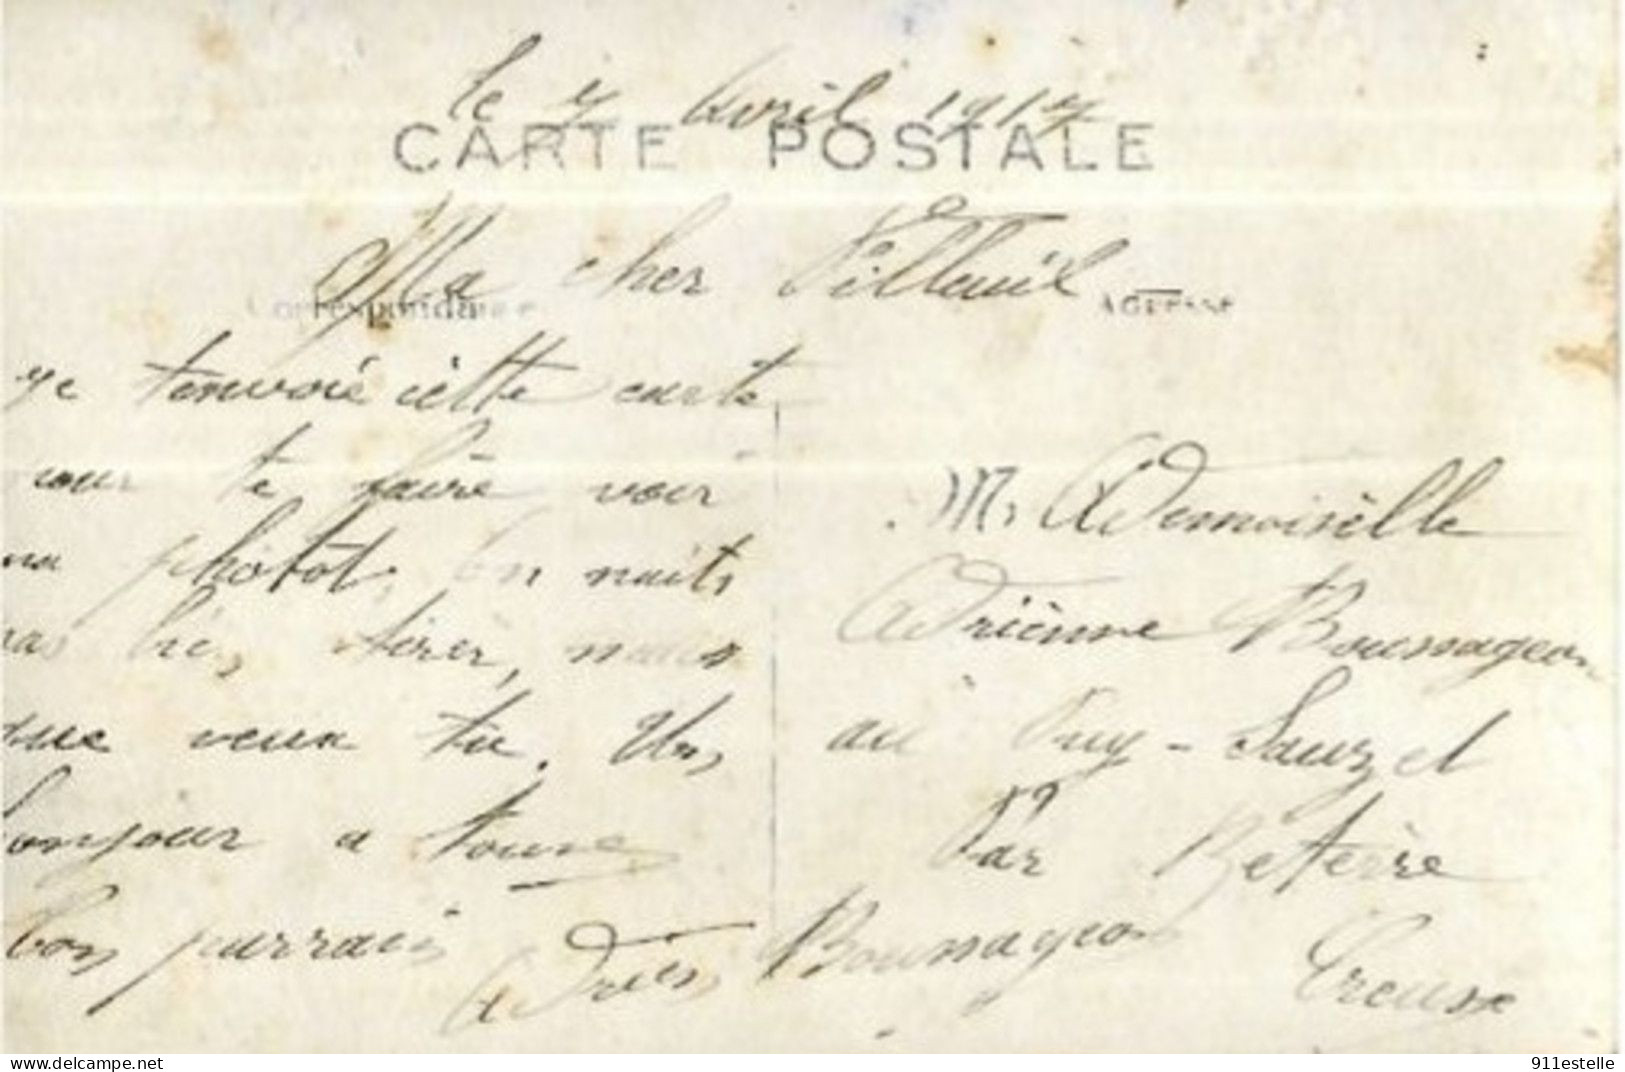 le 7 Avril 1917
CARTE POSTALE
Ma cher Filleuil
Correspondance
ADRESSE
ge tenvoié cètte carte
pour te faire voir
ma photot, on nait
pas bien tirér, mais
que veux tu. Un
bonjour a tous
bon parrain Adrien Boumageon
M. Ademoisèlle
Adriènne Boumageon
au Puy-Sauzet
Par Betérre
Creuse
delcampe.net
911estelle